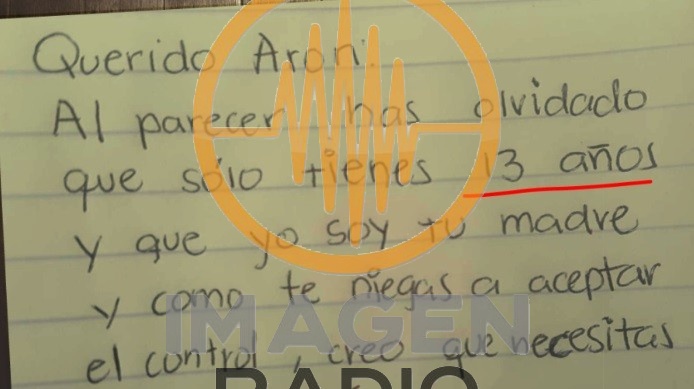 Querido Aron:
Al parecer, has olvidado
que sólo tienes 13 años
y que yo soy tu madre
y como te niegas a aceptar
el control, creo que necesitas
IMAGEN
RADIO